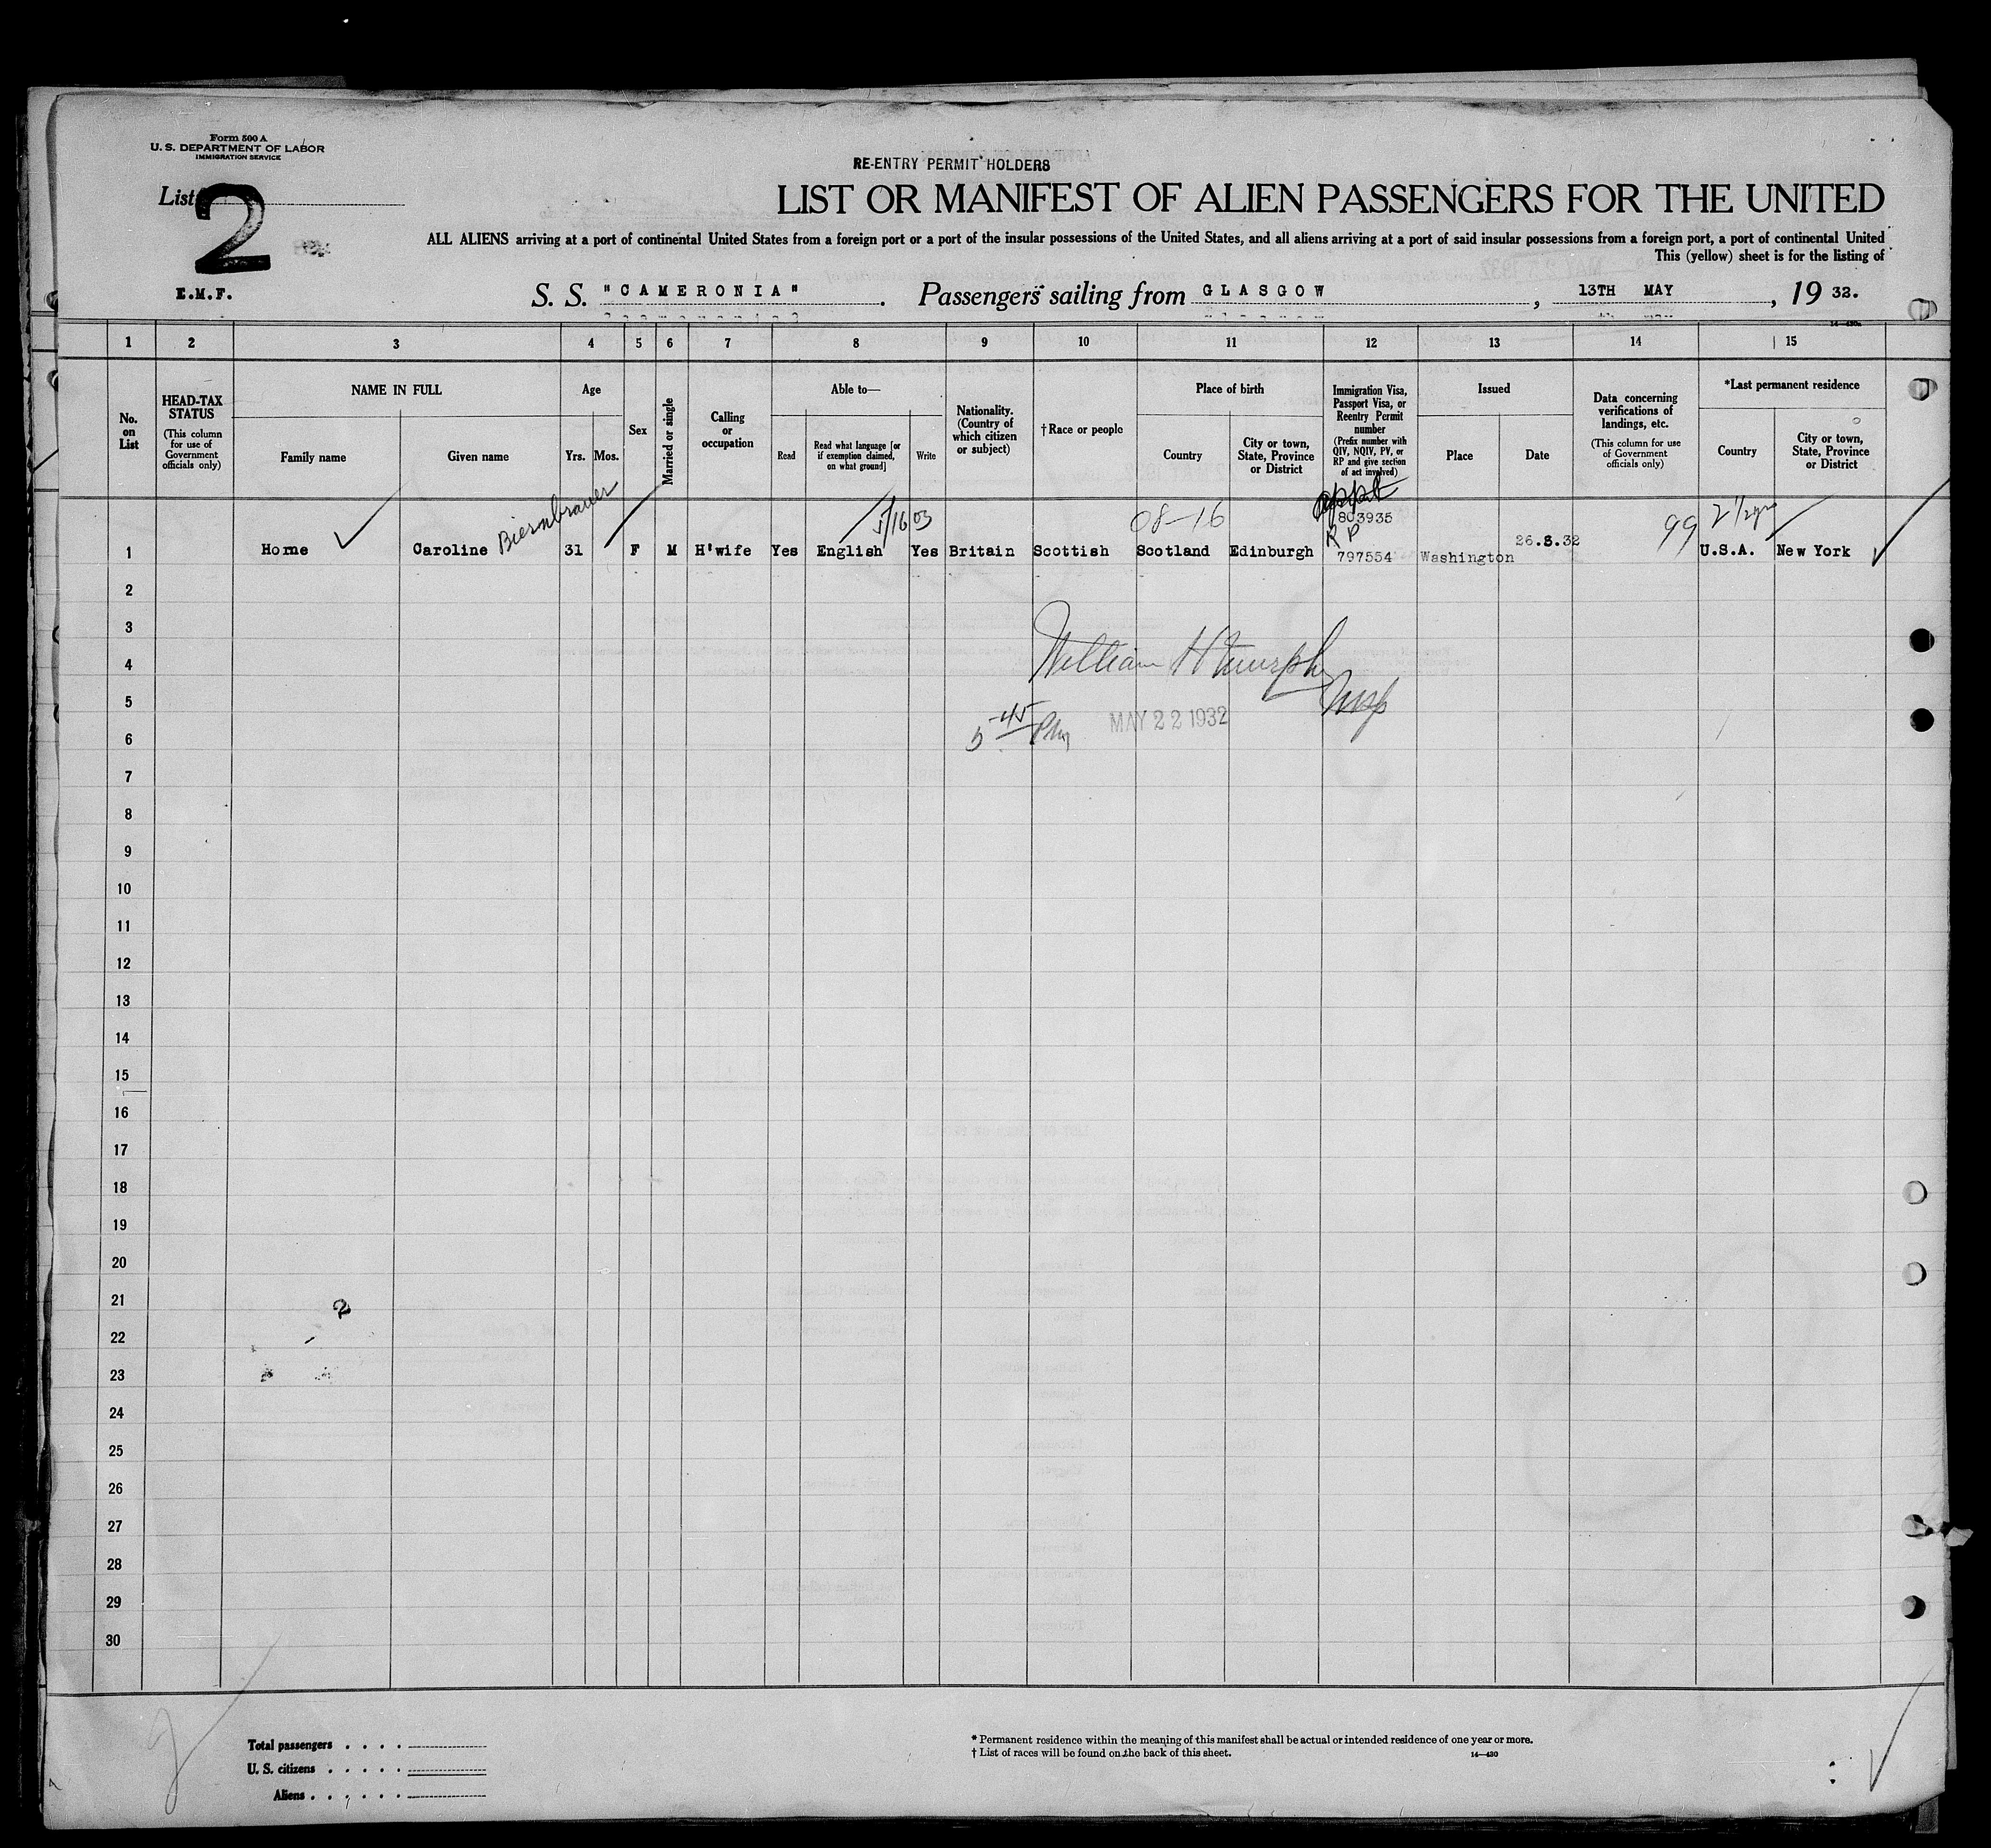 Form 500 A
U. S. DEPARTMENT OF LABOR
IMMIGRATION SERVICE
List 2
E.M.F.
RE-ENTRY PERMIT HOLDERS
LIST OR MANIFEST OF ALIEN PASSENGERS FOR THE UNITED
ALL ALIENS arriving at a port of continental United States from a foreign port or a port of the insular possessions of the United States, and all aliens arriving at a port of said insular possessions from a foreign port, a port of continental United
This (yellow) sheet is for the listing of
S. S. "CAMERONIA". Passengers sailing from GLASGOW, 13TH MAY, 19 32.
14—430a
1 2 3 4 5 6 7 8 9 10 11 12 13 14 15
No. on List
HEAD-TAX STATUS
(This column for use of Government officials only)
NAME IN FULL
Family name
Given name
Age
Yrs. Mos.
Sex
Married or single
Calling or occupation
Able to—
Read
Read what language [or if exemption claimed, on what ground]
Write
Nationality. (Country of which citizen or subject)
†Race or people
Place of birth
Country
City or town, State, Province or District
Immigration Visa, Passport Visa, or Reentry Permit number
(Prefix number with QIV, NQIV, PV, or RP and give section of act involved)
Issued
Place
Date
Data concerning verifications of landings, etc.
(This column for use of Government officials only)
*Last permanent residence
Country
City or town, State, Province or District
Biernbrauer
5/16/03
08-16
appt
803935
R P
99
2 1/2 yrs
1 Home Caroline 31 F M H'wife Yes English Yes Britain Scottish Scotland Edinburgh 797554 Washington 26.8.32 U.S.A. New York
2
3
William H Murphy
4
5
Insp
5 45 Pm MAY 22 1932
6
7
8
9
10
11
12
13
14
15
16
17
18
19
20
21
2
22
23
24
25
26
27
28
29
30
Total passengers . . . .
U. S. citizens . . . . .
Aliens . . . . . .
* Permanent residence within the meaning of this manifest shall be actual or intended residence of one year or more.
† List of races will be found on the back of this sheet.
14—430